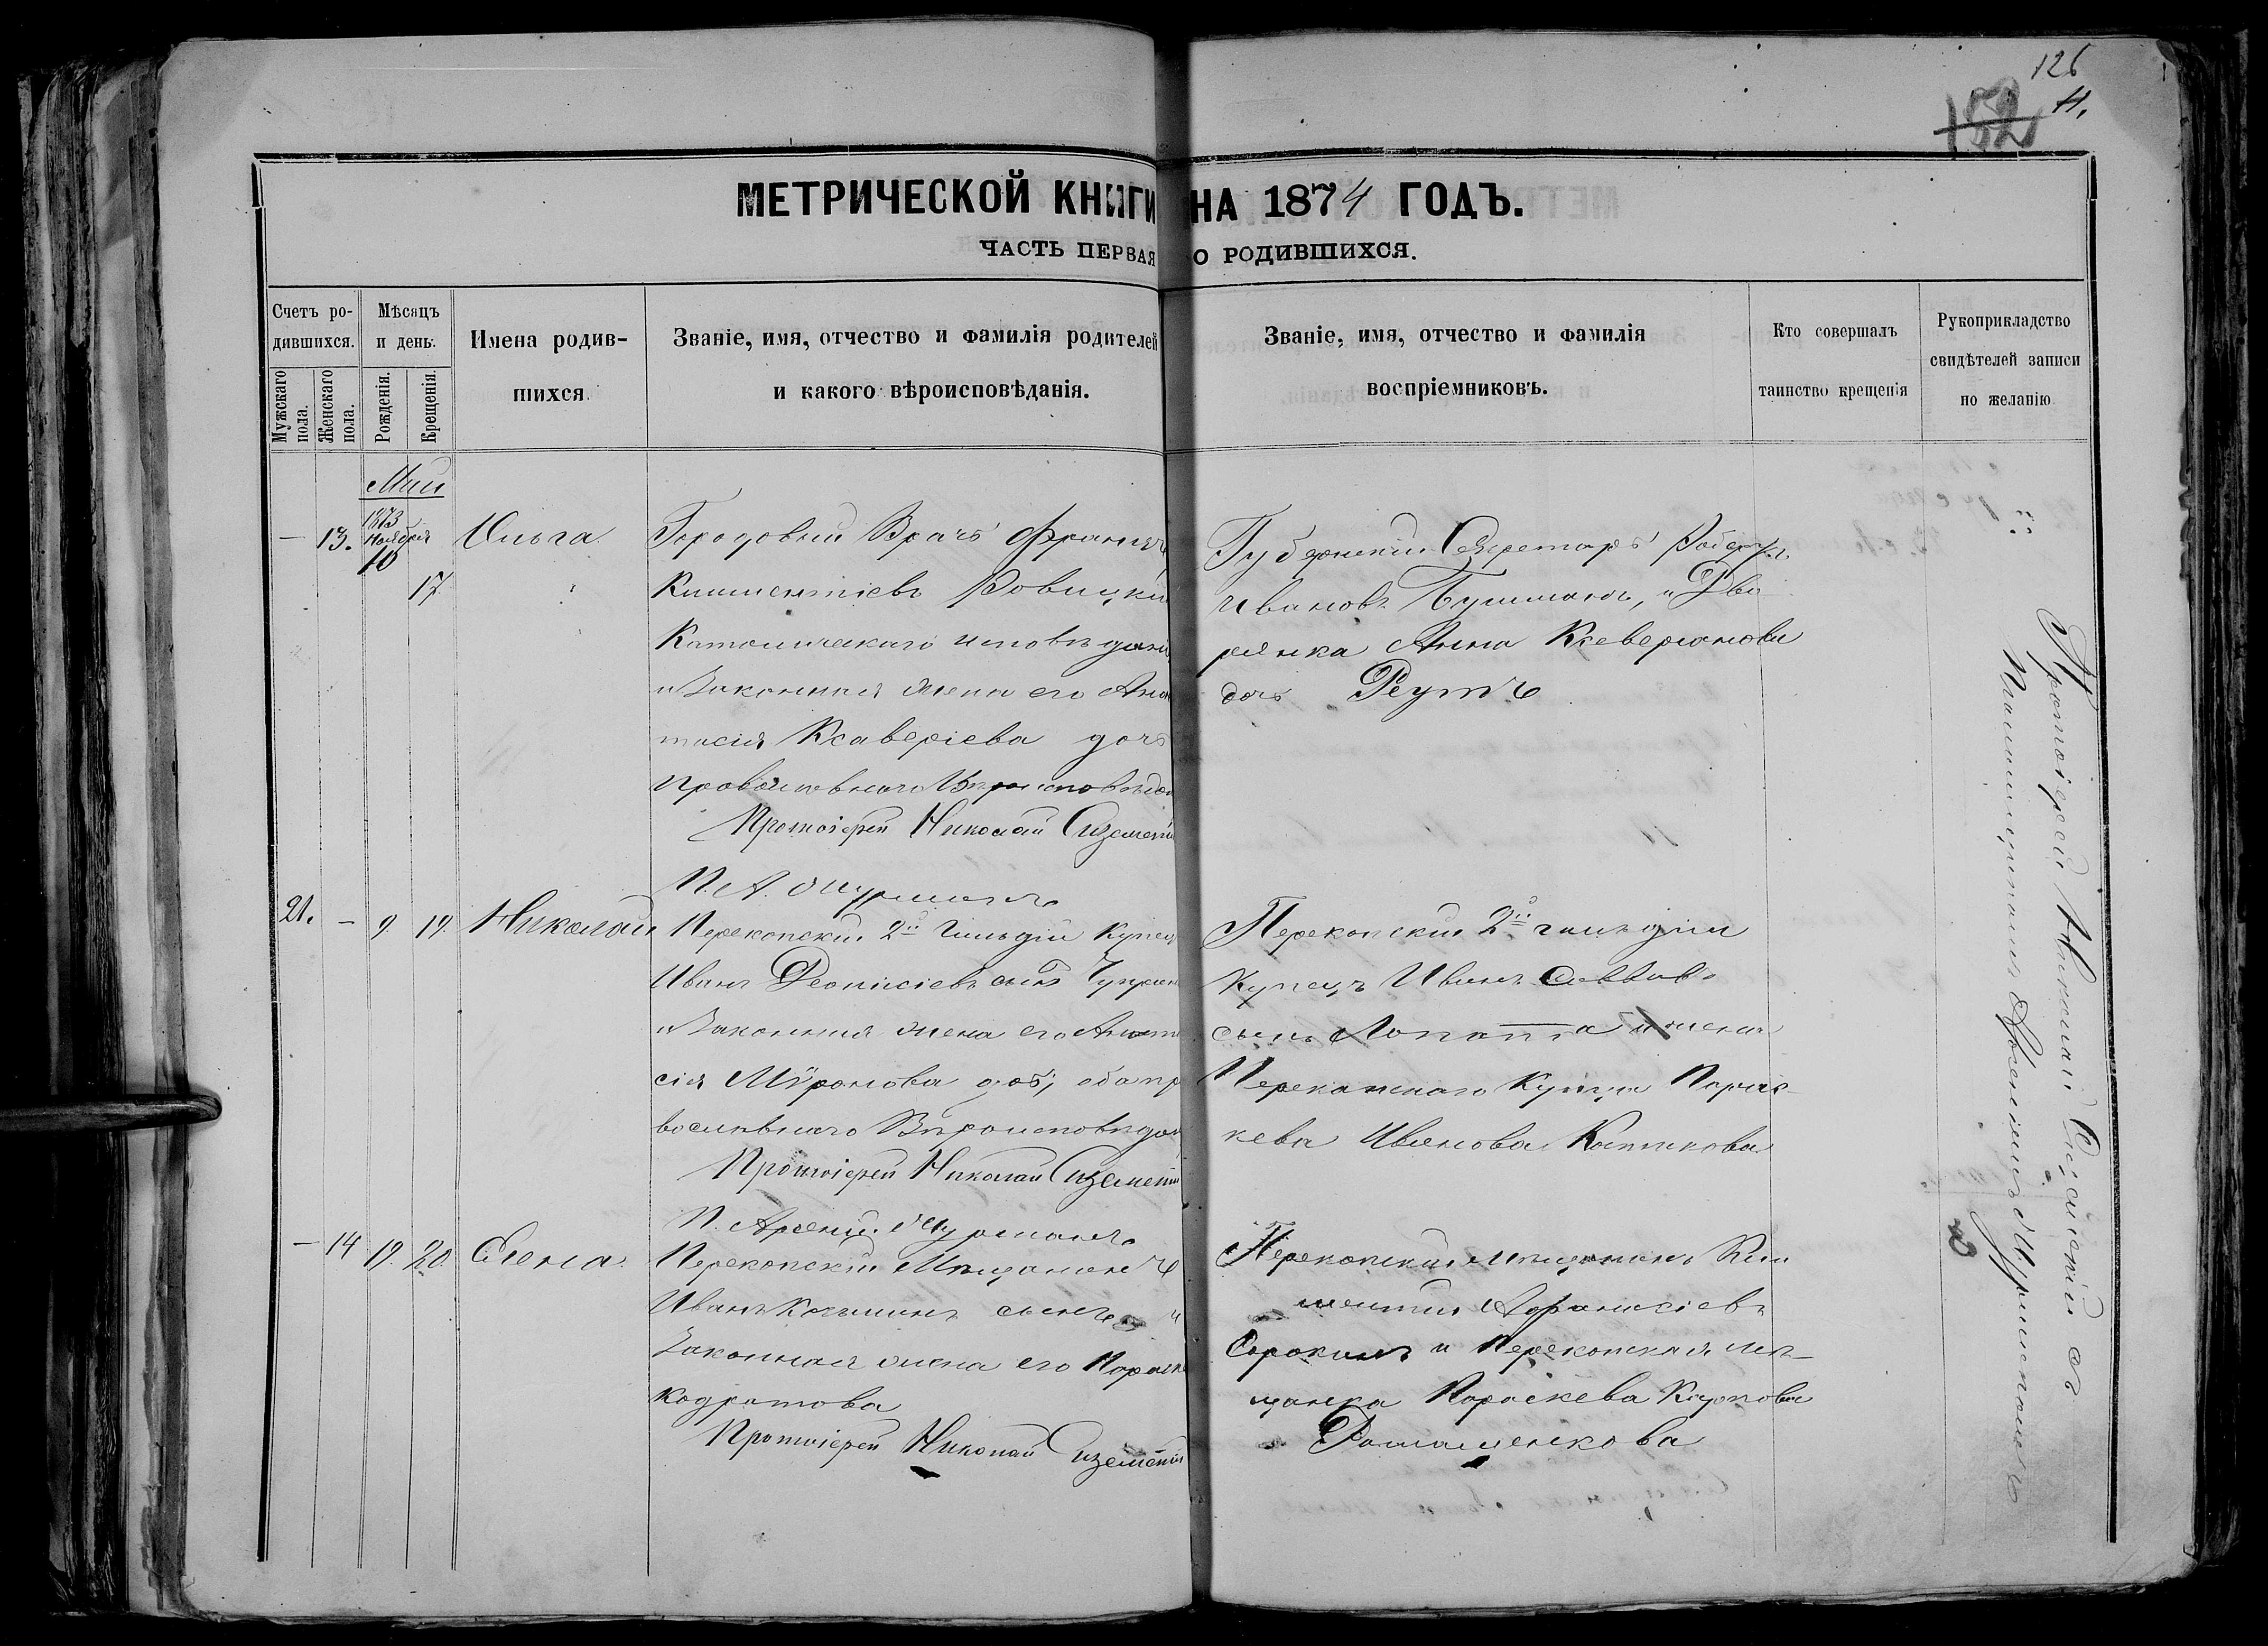 126
152
11.
МЕТРИЧЕСКОЙ КНИГИ НА 1874 ГОДЪ.
ЧАСТЬ ПЕРВАЯ О РОДИВШИХСЯ.
Счетъ родившихся.
Мужскаго пола.
Женскаго пола.
Мѣсяцъ и день.
Рожденія.
Крещенія.
Имена родившихся
Званіе, имя, отчество и фамилія родителей
и какого вѣроисповѣданія.
Званіе, имя, отчество и фамилія
воспріемниковъ.
Кто совершалъ
таинство крещенія
Рукоприкладство
свидѣтелей записи
по желанію
Май
— 13. 1873 Ноября 10
17
Ольга
Городовый Врачъ Францъ
Климентіевъ Ровицкій
Католическаго исповѣдані
и Законная жена его Анас
тасія Ксаверіева дочь
Православнаго Вѣроисповѣда
Протоіерей Николай Сиземскій
Губернскій Секретарь Робертъ
Ивановъ Бушманъ, и Дво
рянка Анна Ксверіанова
дочь Реутъ
21. — 9. 19. Николай
Перекопскій 2й Гильдіи Купец
Иванъ Деонисіевъ сынъ
и Законная жена его Анаста
сія Мѵронова дочь, оба пр
вославнаго Вѣроисповѣдан
Протоіерей Николай Сиземскій
Перекопскій 2й гильдіи
Купецъ Иванъ Саввовъ
сынъ Лопатта и жена
Перекопскаго Купца Парас-
кева Иванова Котикова
— 14 19. 20. Елена
Перекопскій Мѣщанинъ
Иванъ Козьминъ сынъ и
Законная жена его Параск
Кодратова
Протоіерей Николай Сиземскій
Перекопскій Мѣщанинъ Кли
ментій Афанасіевъ
Сорокинъ и Перекопская мѣ-
щанка Параскева Карпова
Ромащенкова
Протоіерей Николай Сиземскій съ